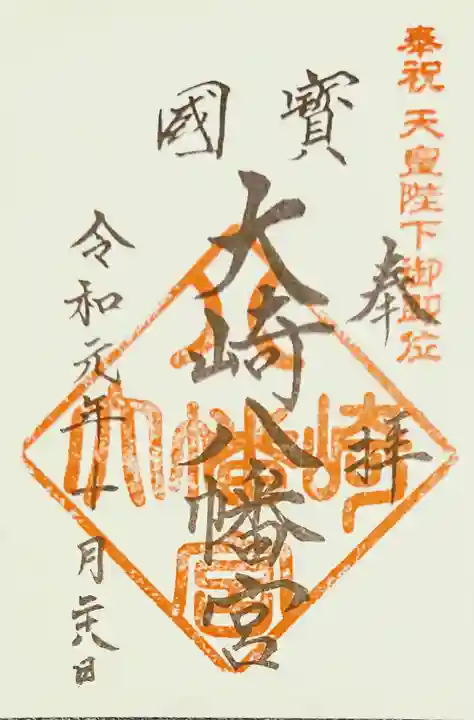 奉祝 天皇陛下御即位
奉拝
寳國
大崎八幡宮
令和元年十月二六日
大崎八幡宮